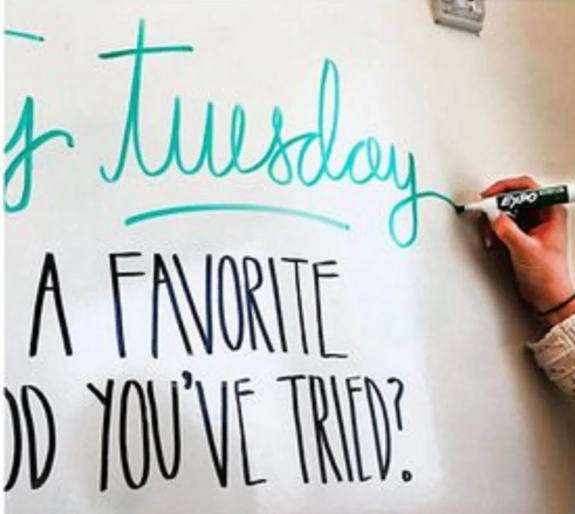 y tuesday
A FAVORITE
OD YOU'VE TRIED?
EXPO